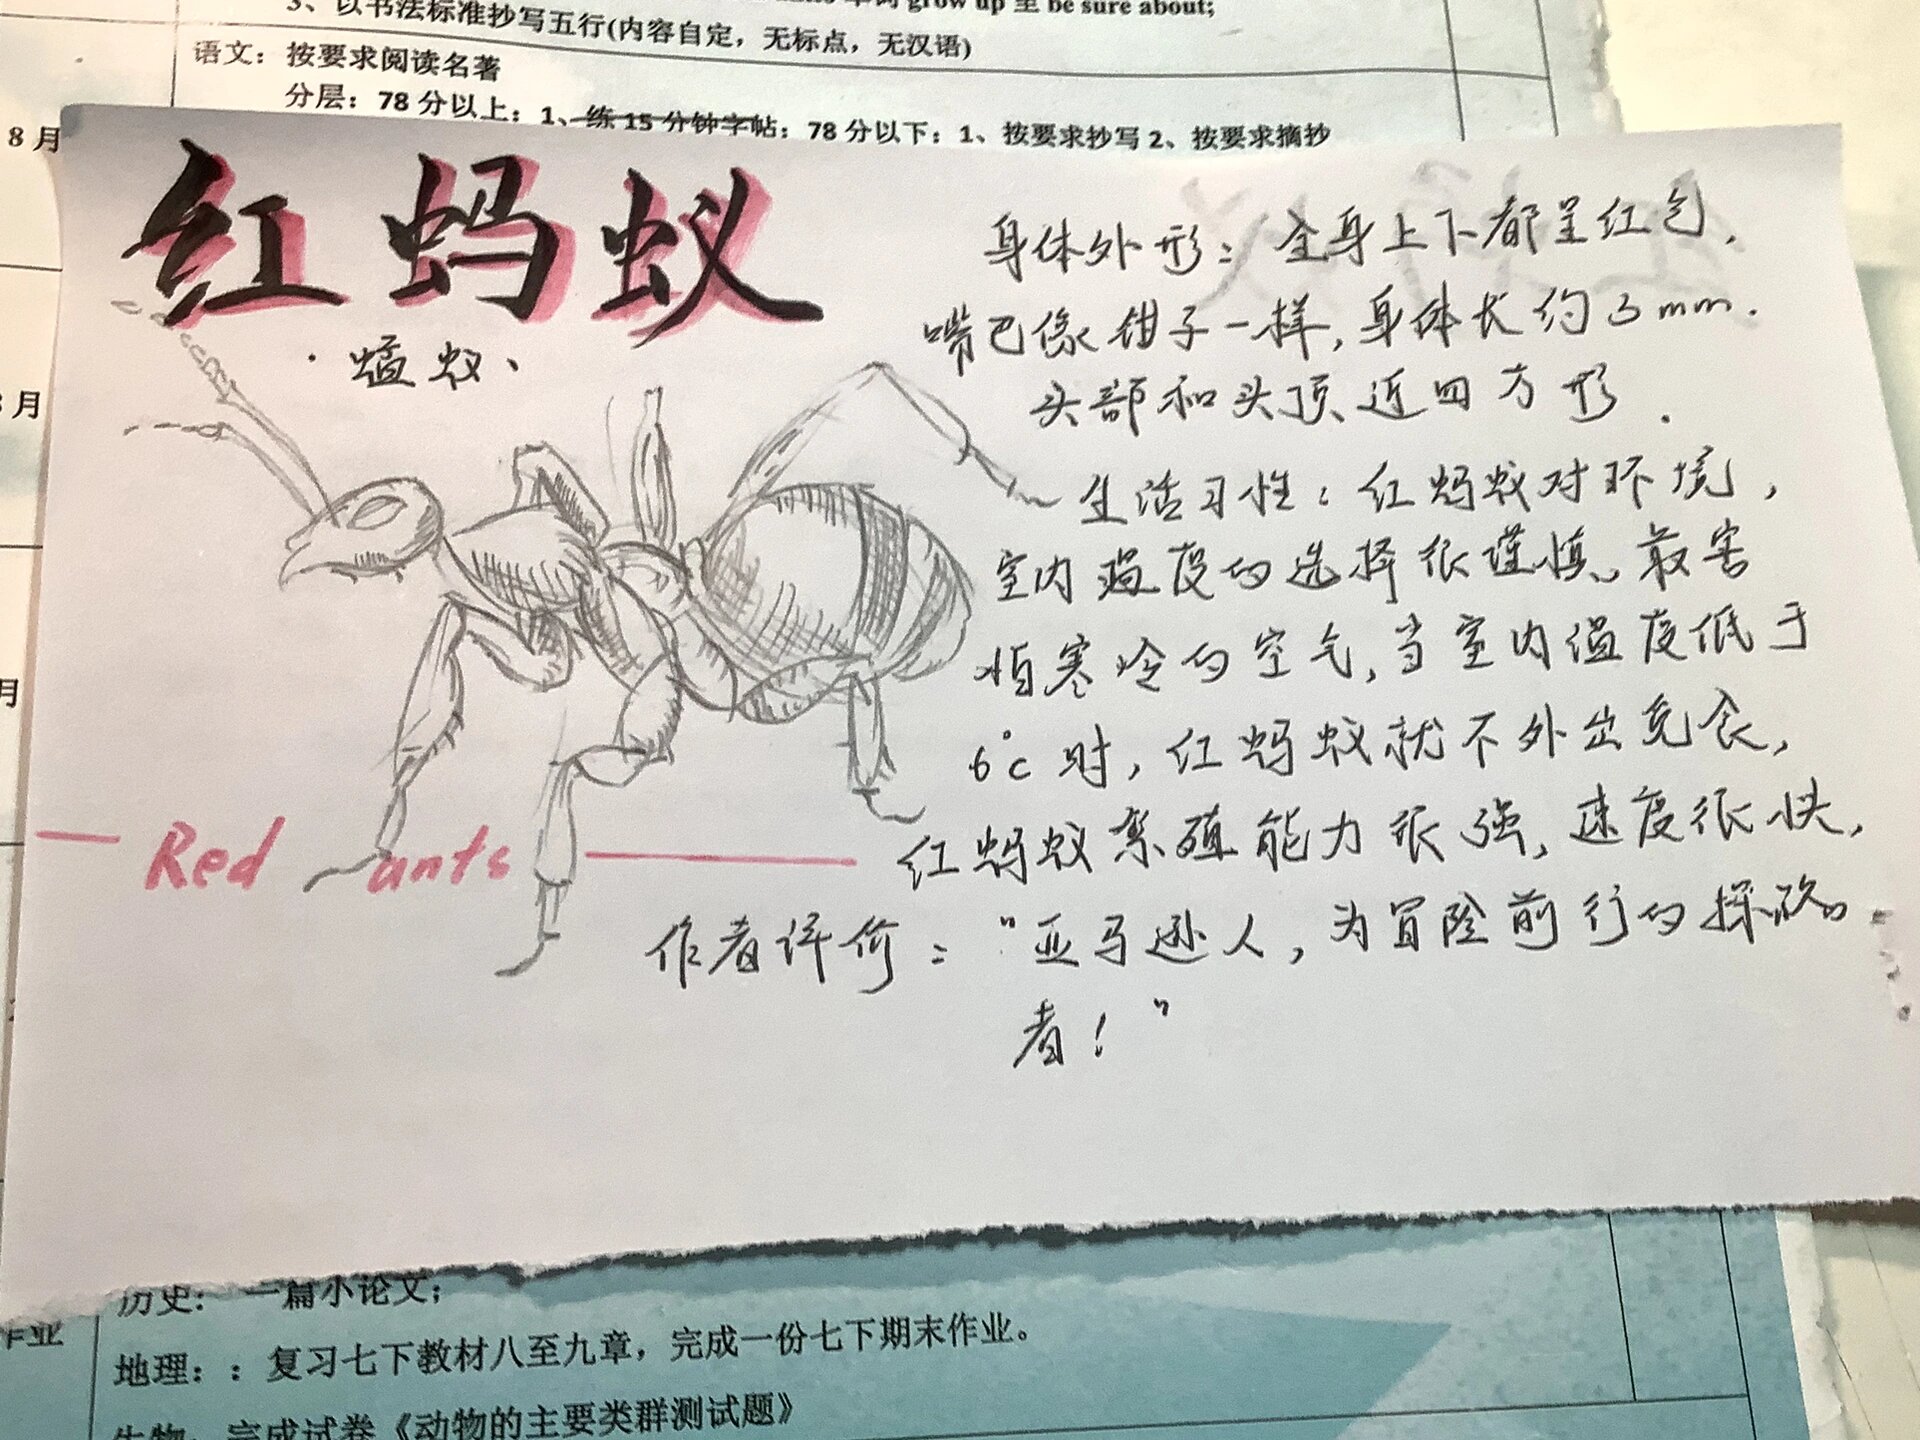 3、以书法标准抄写五行(内容自定，无标点，无汉语)
语文：按要求阅读名著
分层：78分以上：1、练15分钟字帖；78分以下：1、按要求抄写2、按要求摘抄
8月
红蚂蚁
·蜢蚁、
身体外形：全身上下都呈红色，
嘴巴像钳子一样，身体长约3mm.
头部和头顶近四方形.
生活习性：红蚂蚁对环境，
室内温度的选择很谨慎、最害
怕寒冷的空气，当室内温度低于
6℃时，红蚂蚁就不外出觅食，
红蚂蚁繁殖能力很强，速度很快，
Red ants
作者评价："亚马逊人，为冒险前行的探路
者！"
月
月
历史：一篇小论文；
作业
地理：：复习七下教材八至九章，完成一份七下期末作业。
生物：完成试卷《动物的主要类群测试题》